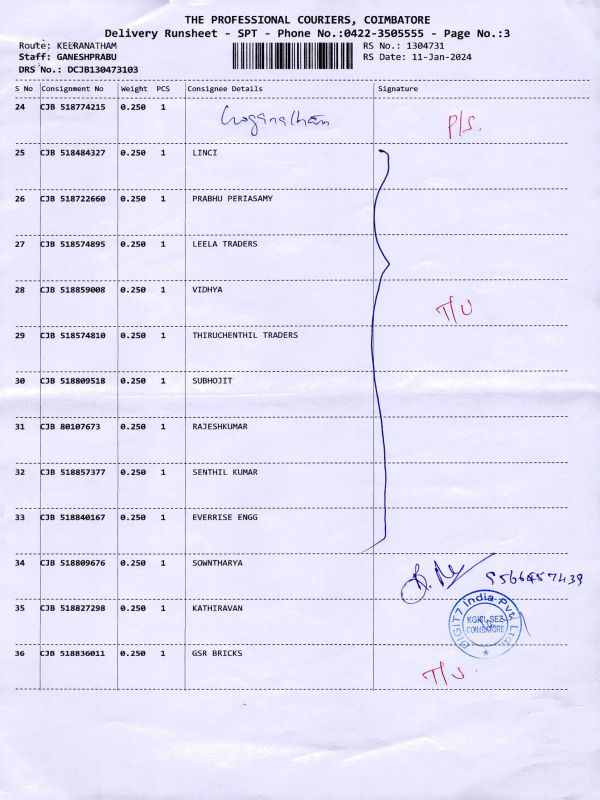 THE PROFESSIONAL COURIERS, COIMBATORE
Delivery Runsheet - SPT - Phone No.:0422-3505555 - Page No.:3
Route: KEERANATHAM RS No.: 1304731
Staff: GANESHPRABU RS Date: 11-Jan-2024
DRS No.: DCJB130473103
S No Consignment No Weight PCS Consignee Details Signature
24 CJB 518774215 0.250 1 Loganathan P/S.
25 CJB 518484327 0.250 1 LINCI
26 CJB 518722660 0.250 1 PRABHU PERIASAMY
27 CJB 518574895 0.250 1 LEELA TRADERS
28 CJB 518859008 0.250 1 VIDHYA T/U
29 CJB 518574810 0.250 1 THIRUCHENTHIL TRADERS
30 CJB 518809518 0.250 1 SUBHOJIT
31 CJB 80107673 0.250 1 RAJESHKUMAR
32 CJB 518857377 0.250 1 SENTHIL KUMAR
33 CJB 518840167 0.250 1 EVERRISE ENGG
34 CJB 518809676 0.250 1 SOWNTHARYA 9566457439
35 CJB 518827298 0.250 1 KATHIRAVAN
DIGIT7 India Pvt. Ltd.
KGISL SEZ
COIMBATORE
36 CJB 518836011 0.250 1 GSR BRICKS T/U.